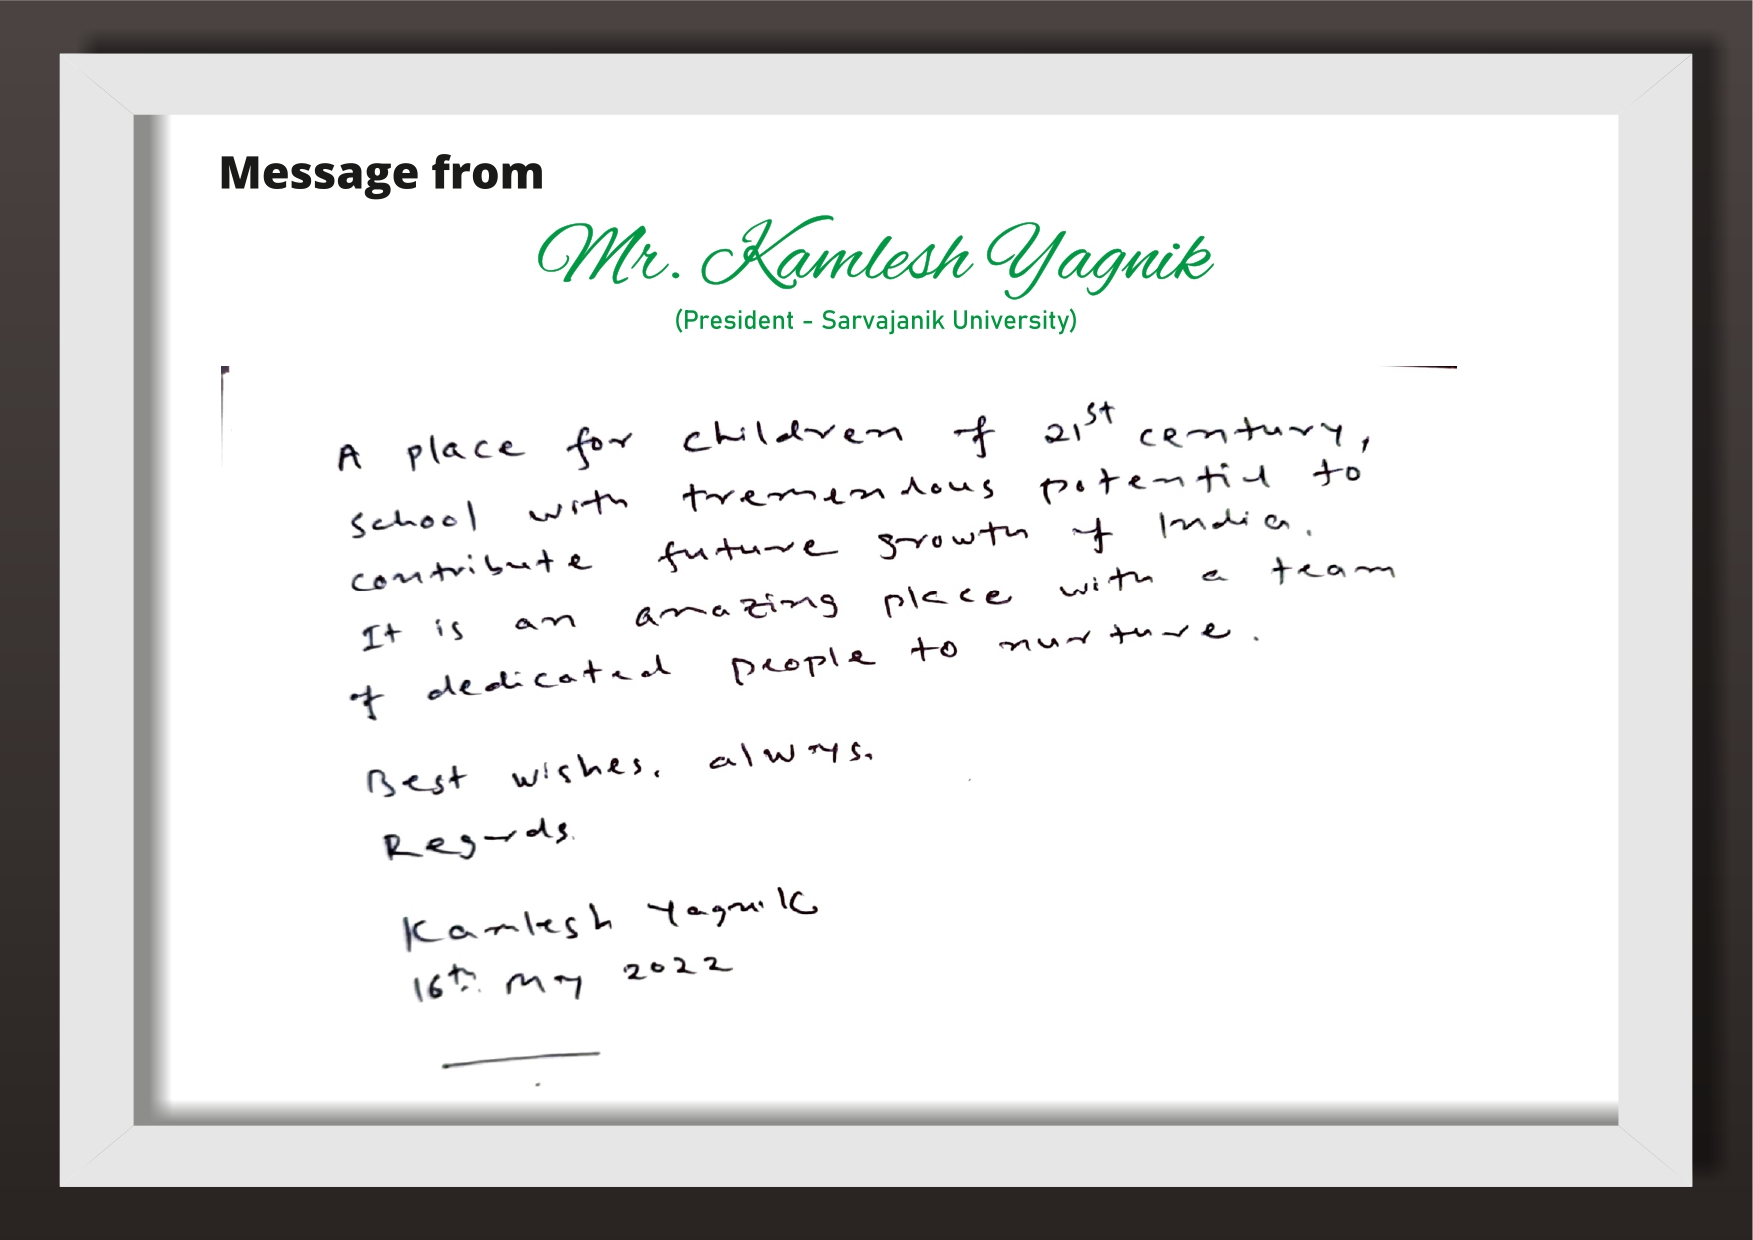 Message from
Mr. Kamlesh Yagnik
(President - Sarvajanik University)
A place for children of 21st century,
school with tremendous potential to
contribute future growth of India.
It is an amazing place with a team
of dedicated people to nurture.
Best wishes, always.
Regards.
Kamlesh Yagnik
16th May 2022